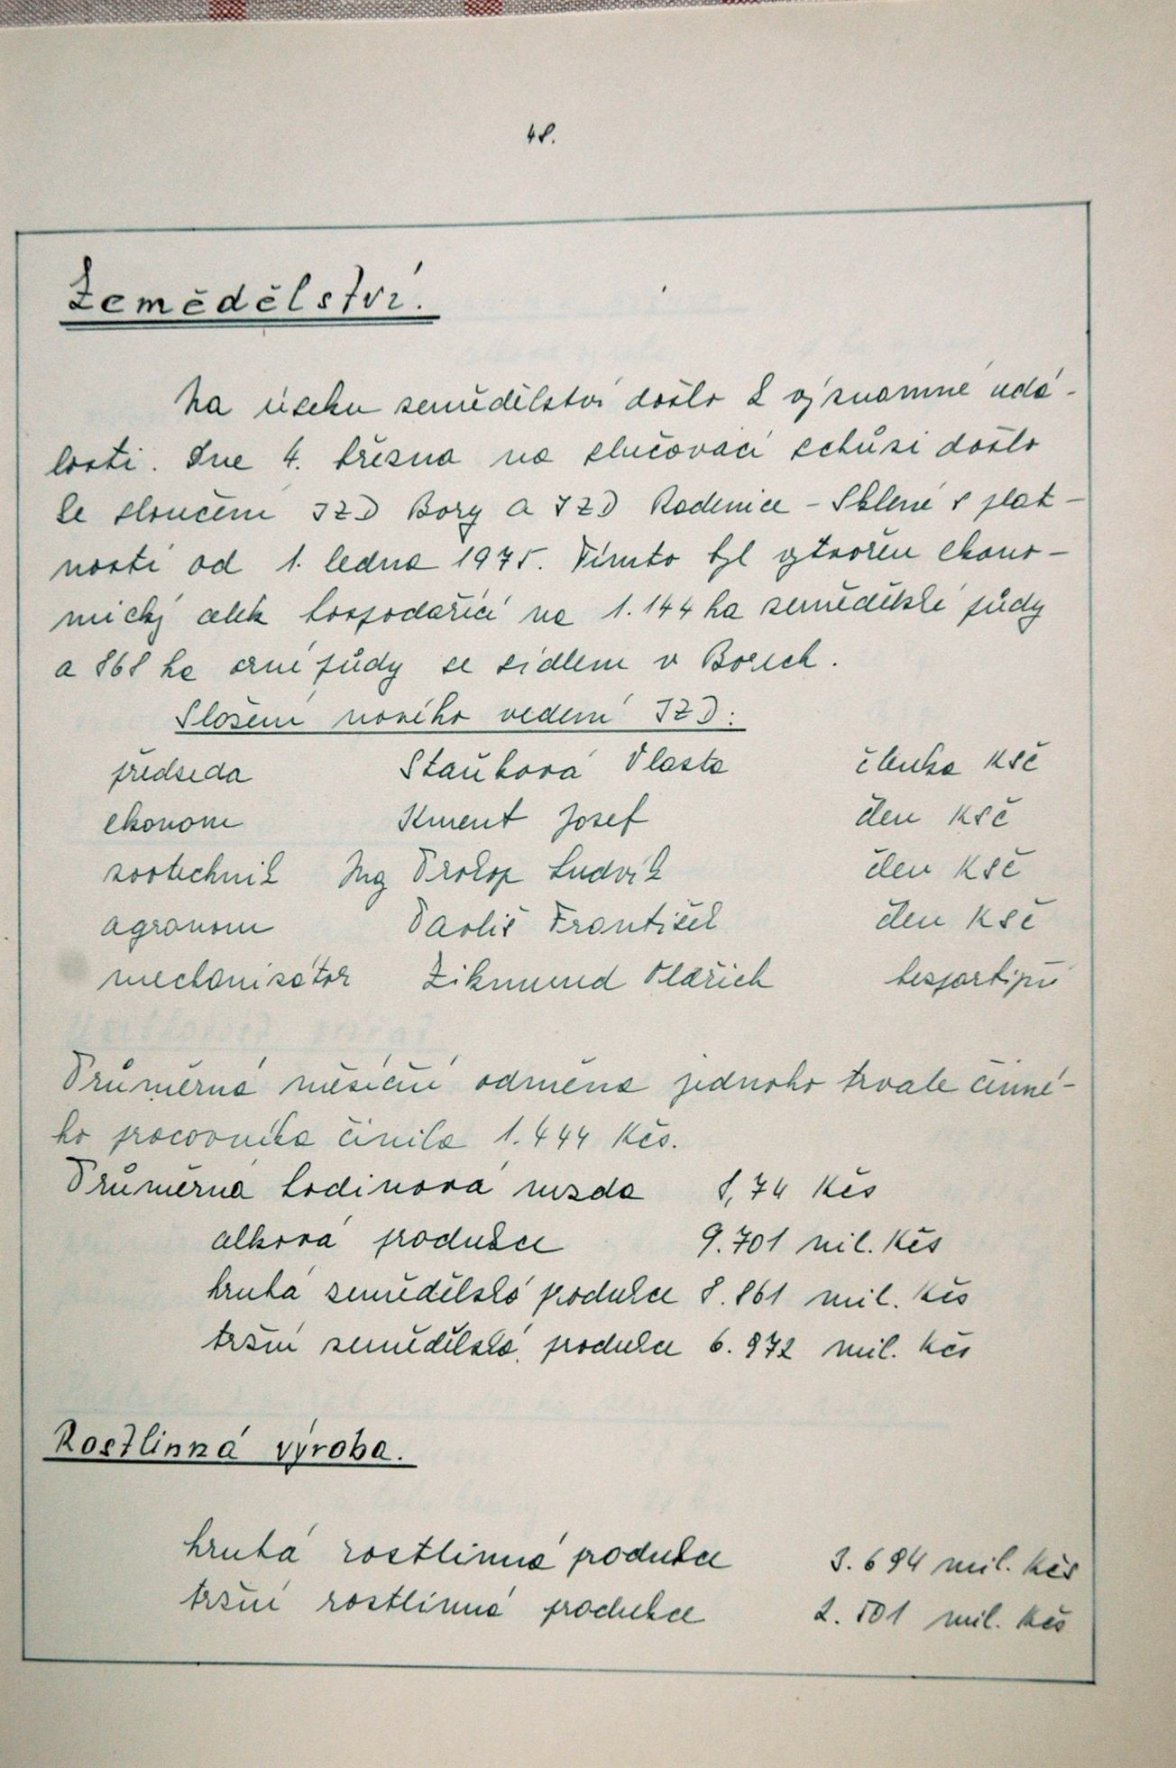 48.
Zemědělství.
Na úseku zemědělství došlo k významné udá-
losti. Dne 4. března na slučovací schůzi došlo
ke sloučení JZD Bory a JZD Radenice - Sklené s plat-
ností od 1. ledna 1975. Tímto byl vytvořen ekono-
mický celek hospodařící na 1.144 ha zemědělské půdy
a 868 ha orné půdy se sídlem v Borech.
Složení nového vedení JZD:
předseda Staňková Vlasta členka KSČ
ekonom Kment Josef člen KSČ
zootechnik Ing Prokop Ludvík člen KSČ
agronom Pavliš František člen KSČ
mechanisátor Zikmund Oldřich bezpartijní
Průměrná měsíční odměna jednoho trvale činné-
ho pracovníka činila 1.444 Kčs.
Průměrná hodinová mzda 8,74 Kčs
celková produkce 9.701 mil. Kčs
hrubá zemědělská produkce 8.861 mil. Kčs
tržní zemědělská produkce 6.972 mil. Kčs
Rostlinná výroba.
hrubá rostlinná produkce 3.694 mil. Kčs
tržní rostlinná produkce 2.501 mil. Kčs